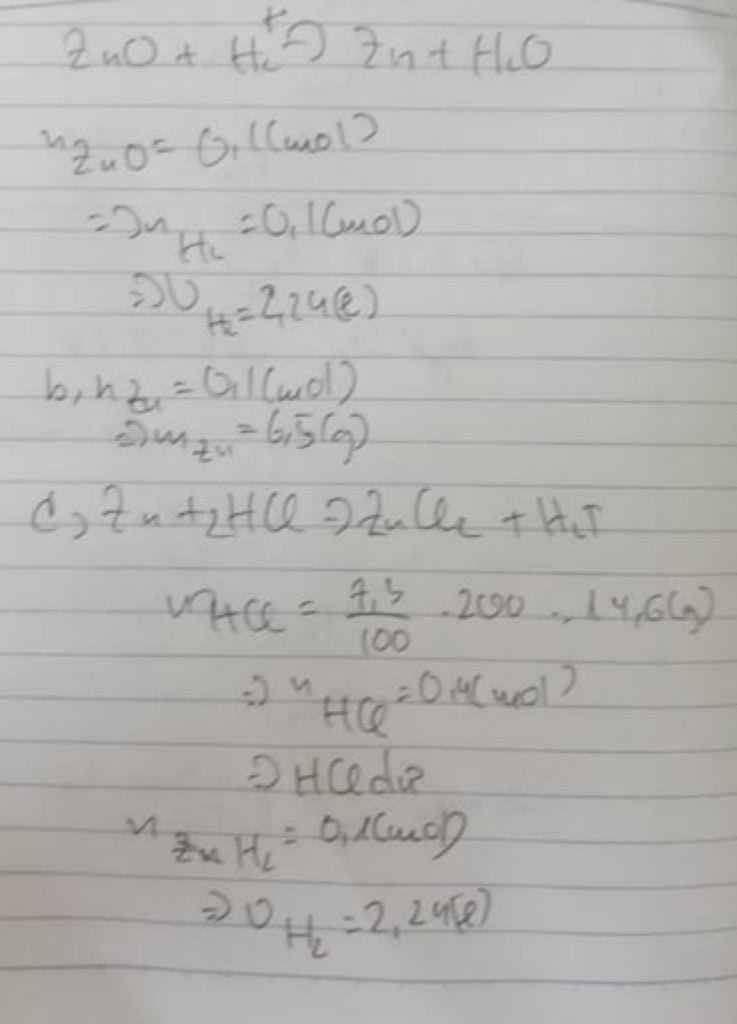 ZnO + H₂ t⇒ Zn + H₂O
nZnO = 0,1(mol)
=> nH₂ = 0,1(mol)
=> VH₂ = 2,24(l)
b, nZn = 0,1(mol)
=> mZn = 6,5(g)
c, Zn + 2HCl => ZnCl₂ + H₂↑
mHCl = 7,3/100 . 200 = 14,6(g)
=> nHCl = 0,4(mol)
=> HCl dư
nZn H₂ = 0,1(mol)
=> VH₂ = 2,24(l)